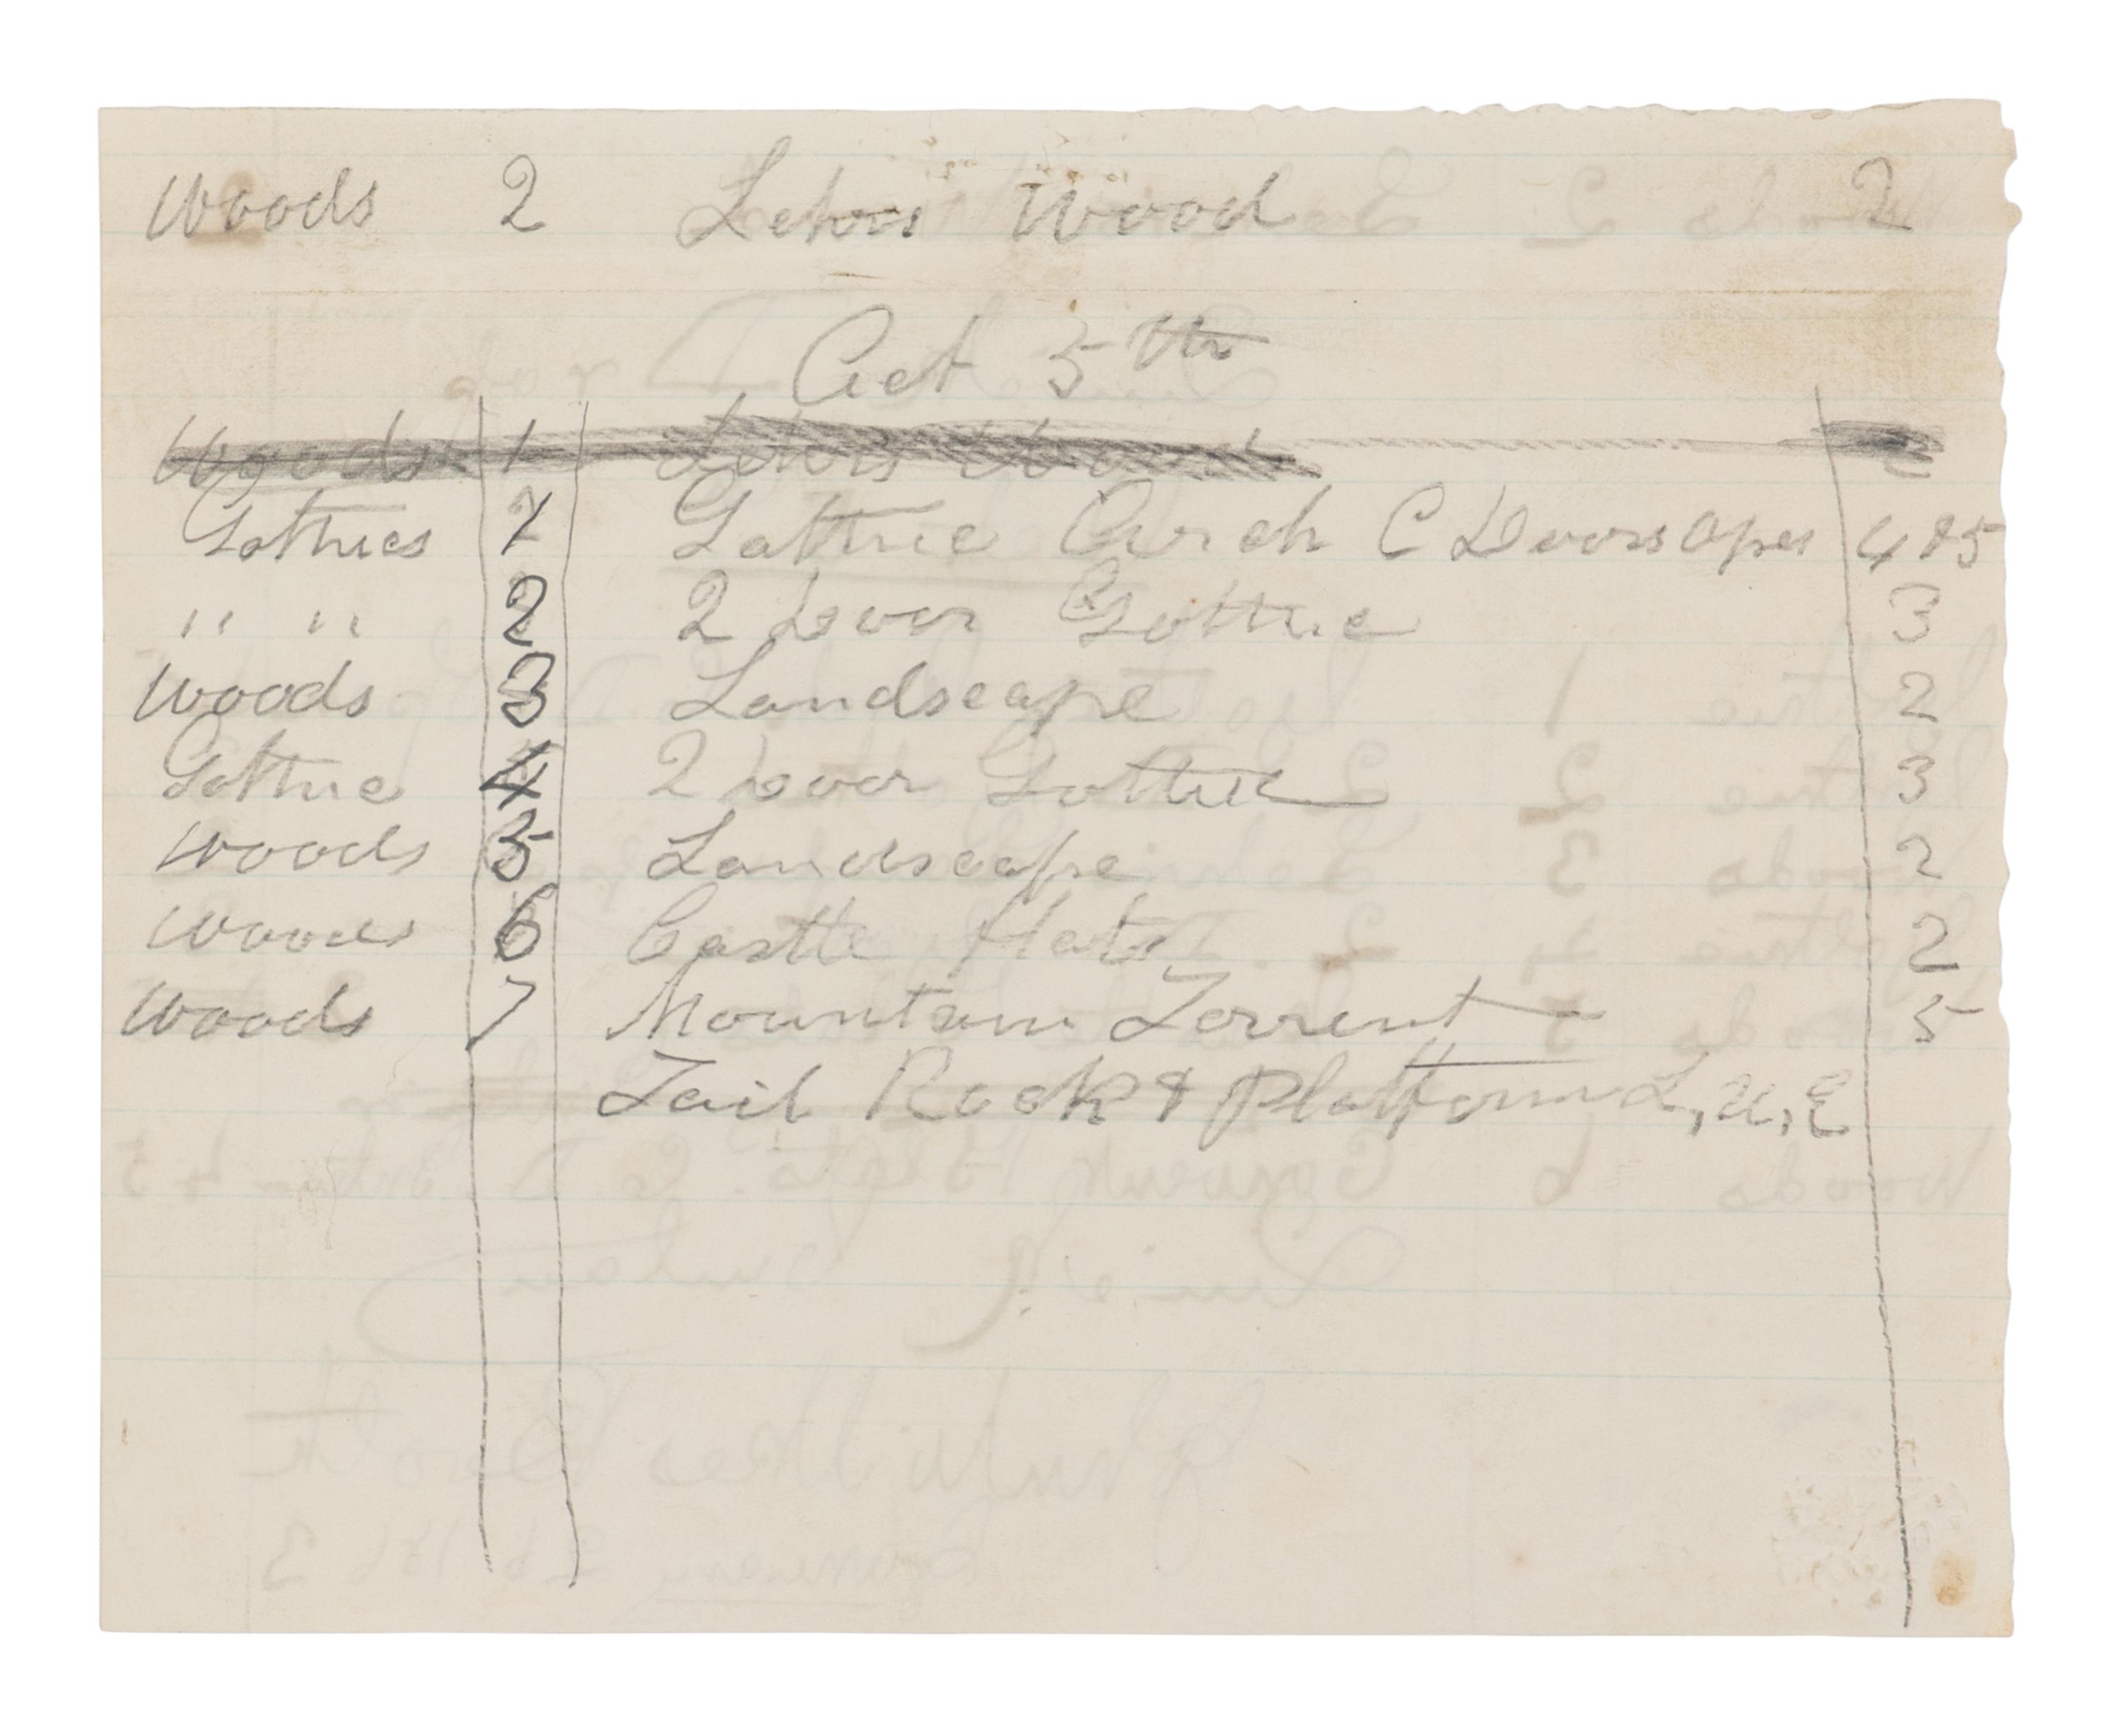 Woods 2 Lehrs Wood 2
Act 5th
Woods 1 Lehrs Wood 2
Gothics 1 Gothic Arch C Doors Open 4 & 5
" " 2 2 Door Gothic 3
Woods 3 Landscape 2
Gothic 4 2 Door Gothic 3
Woods 5 Landscape 2
Woods 6 Castle Flats 2
Woods 7 Mountain Torrent 5
Tail Rock & Platform L, U, E